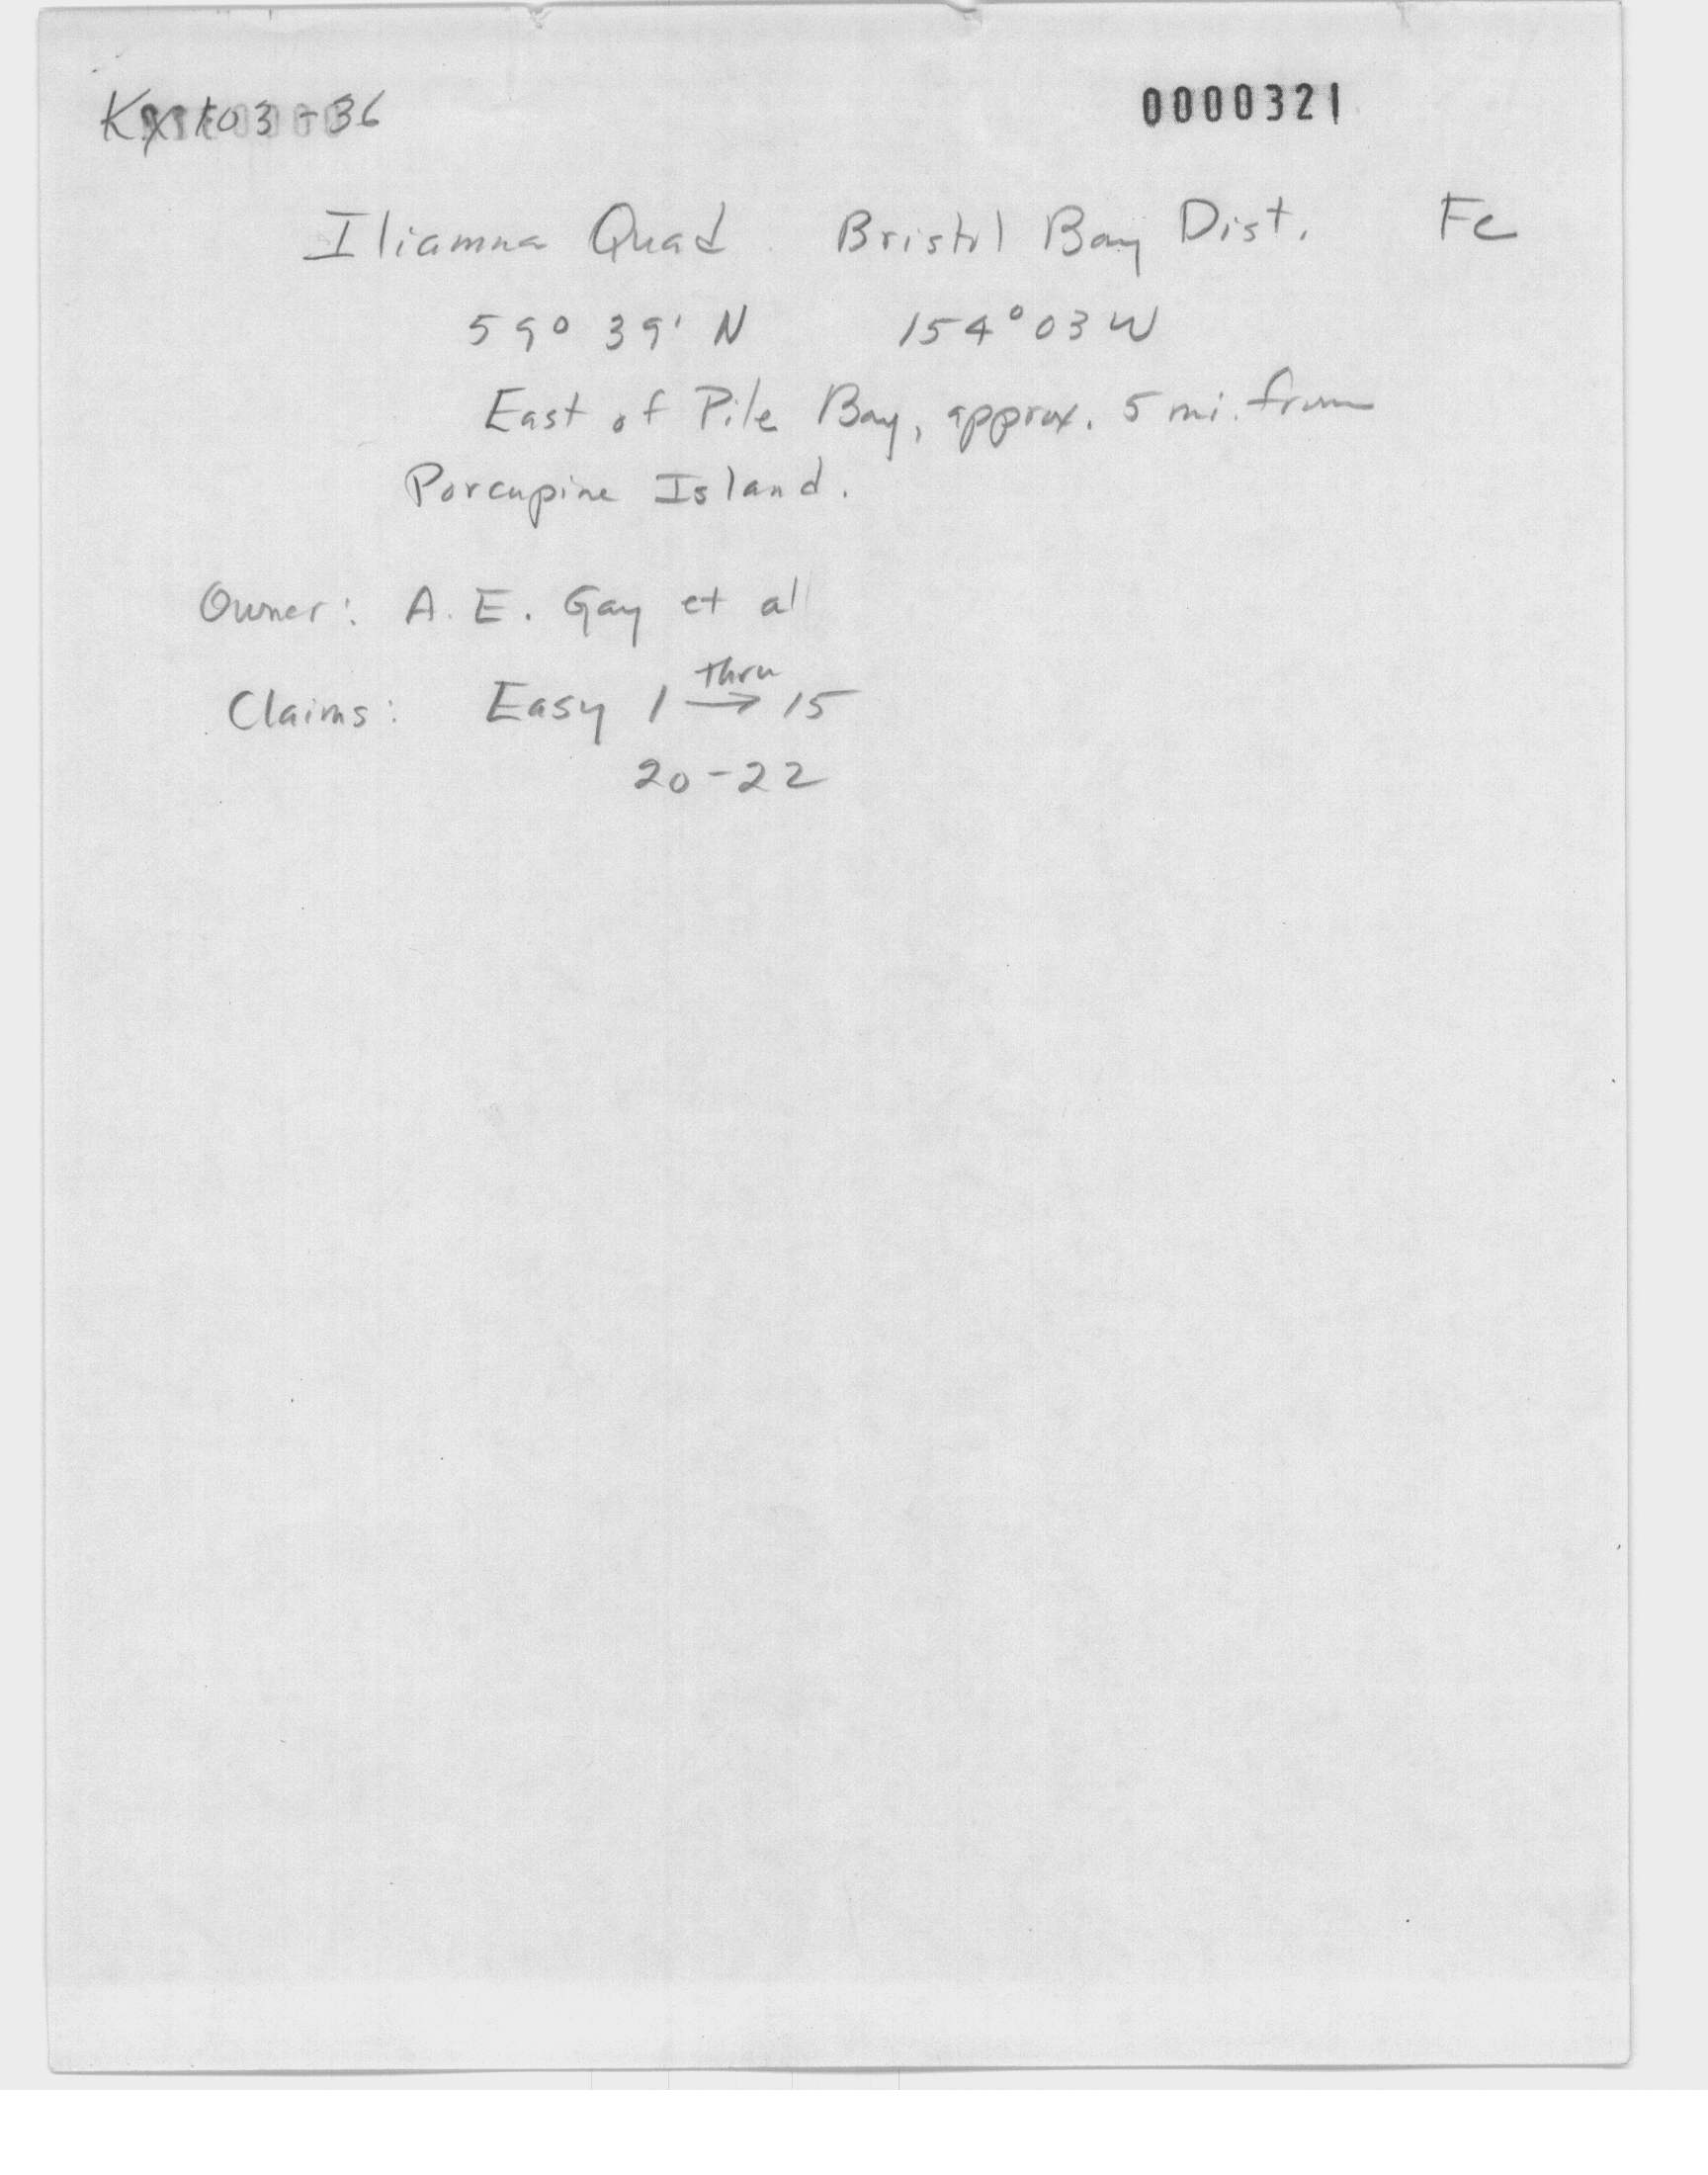 Kx 103-36
0000321
Iliamna Quad Bristol Bay Dist. Fe
59° 39' N 154° 03 W
East of Pile Bay, approx. 5 mi. from
Porcupine Island.
Owner: A. E. Gay et al
Claims: Easy 1 thru → 15
20-22